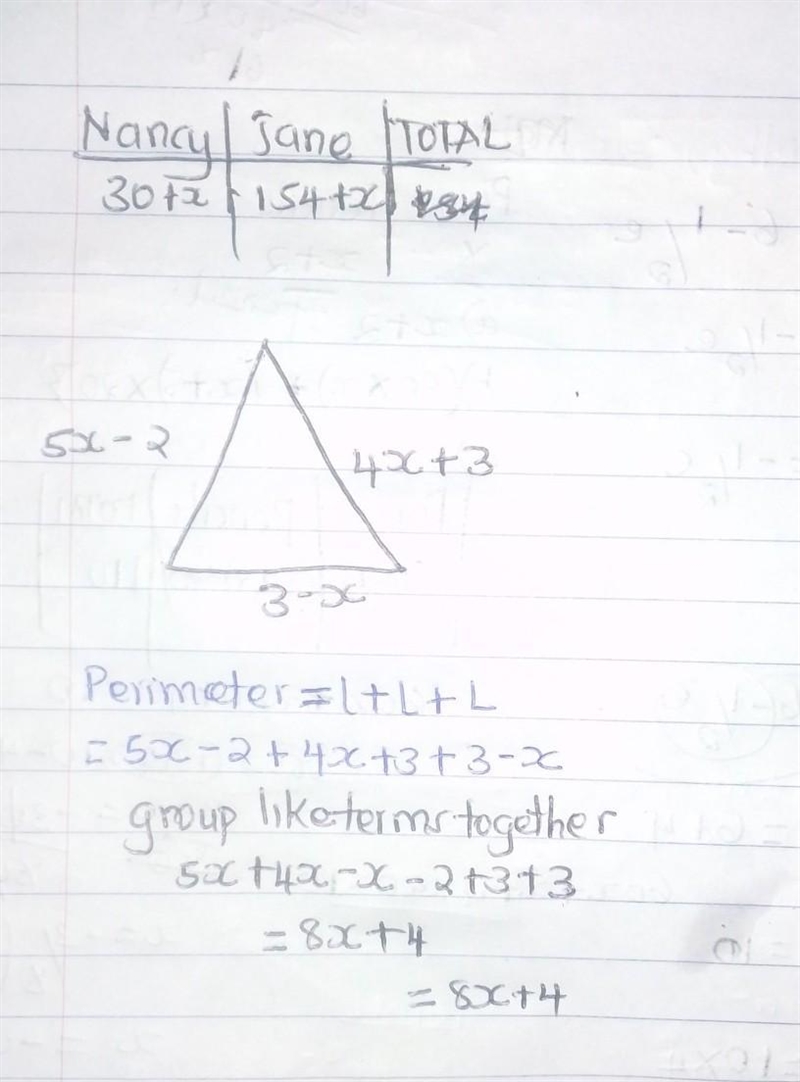 Nancy Jane TOTAL
30+x 154+x
5x-2
4x+3
3-x
Perimeter = L+L+L
= 5x-2+4x+3+3-x
group like terms together
5x+4x-x-2+3+3
= 8x+4
= 8x+4